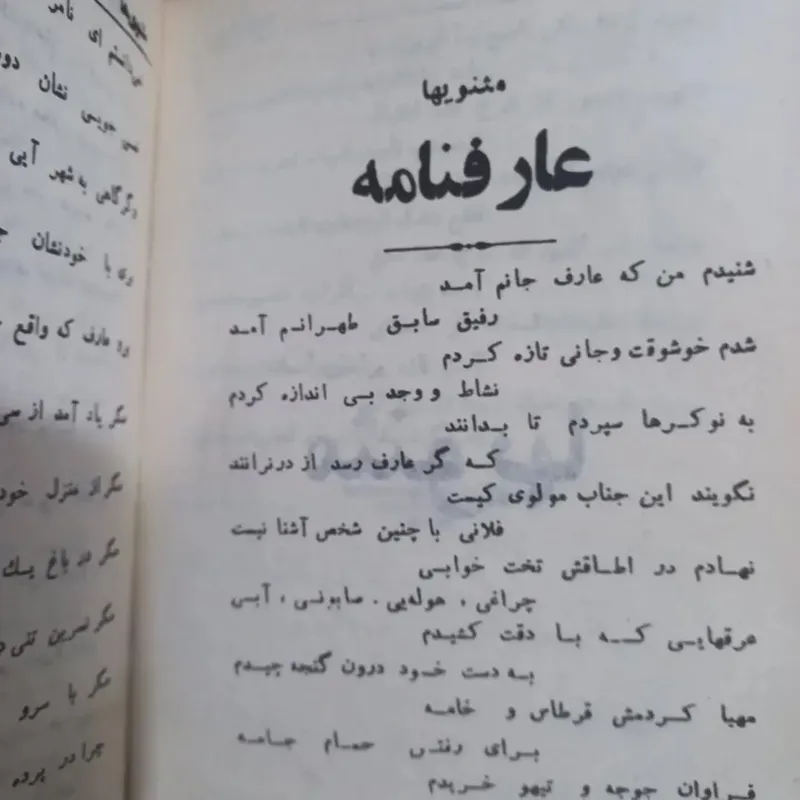 مثنویها
عارفنامه
شنیدم من که عارف جانم آمد
رفیق سابق طهرانم آمد
شدم خوشوقت وجانی تازه کردم
نشاط و وجد بی اندازه کردم
به نوکرها سپردم تا بدانند
که گر عارف رسد از درنرانند
نگویند این جناب مولوی کیست
فلانی با چنین شخص آشنا نیست
نهادم در اطاقش تخت خوابی
چراغی، هوله‌یی، صابونی، آبی
عرقهایی که با دقت کشیدم
به دست خود درون گنجه چیدم
مهیا کردمش قرطاس و خامه
برای رفتن حمام جامه
فراوان جوجه و تیهو خریدم
ای
می جویی نشان
دگر گاهی به شهر آیی
با خودنشان
عارف که واقع
مگر یاد آمد از سی
مگراز منزل خود
مگر در باغ یك
مگر نسرین تنی
مگر با سرو
چرا در پرده